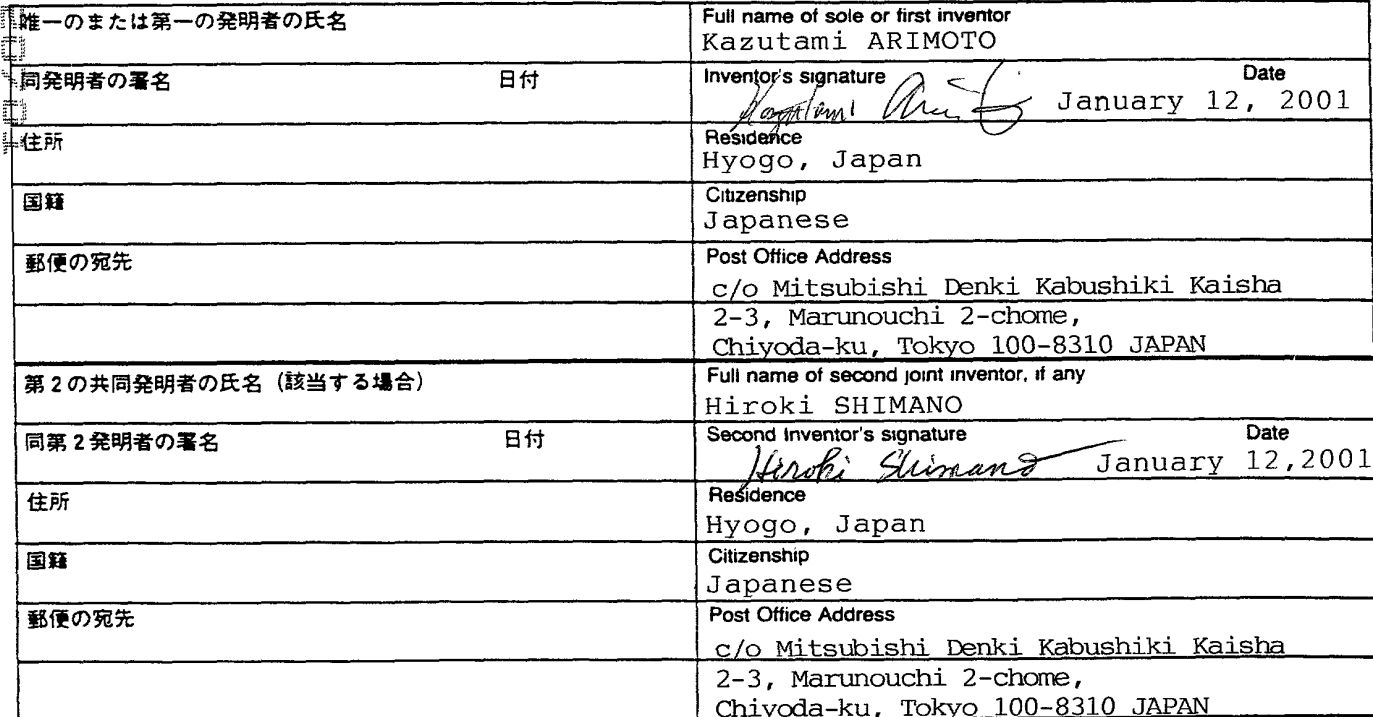 唯一のまたは第一の発明者の氏名
Full name of sole or first inventor
Kazutami ARIMOTO
同発明者の署名 日付
Inventor's signature Date
January 12, 2001
住所
Residence
Hyogo, Japan
国籍
Citizenship
Japanese
郵便の宛先
Post Office Address
c/o Mitsubishi Denki Kabushiki Kaisha
2-3, Marunouchi 2-chome,
Chiyoda-ku, Tokyo 100-8310 JAPAN
第2の共同発明者の氏名(該当する場合)
Full name of second joint inventor, if any
Hiroki SHIMANO
同第2発明者の署名 日付
Second Inventor's signature Date
Hiroki Shimano January 12,2001
住所
Residence
Hyogo, Japan
国籍
Citizenship
Japanese
郵便の宛先
Post Office Address
c/o Mitsubishi Denki Kabushiki Kaisha
2-3, Marunouchi 2-chome,
Chiyoda-ku, Tokyo 100-8310 JAPAN